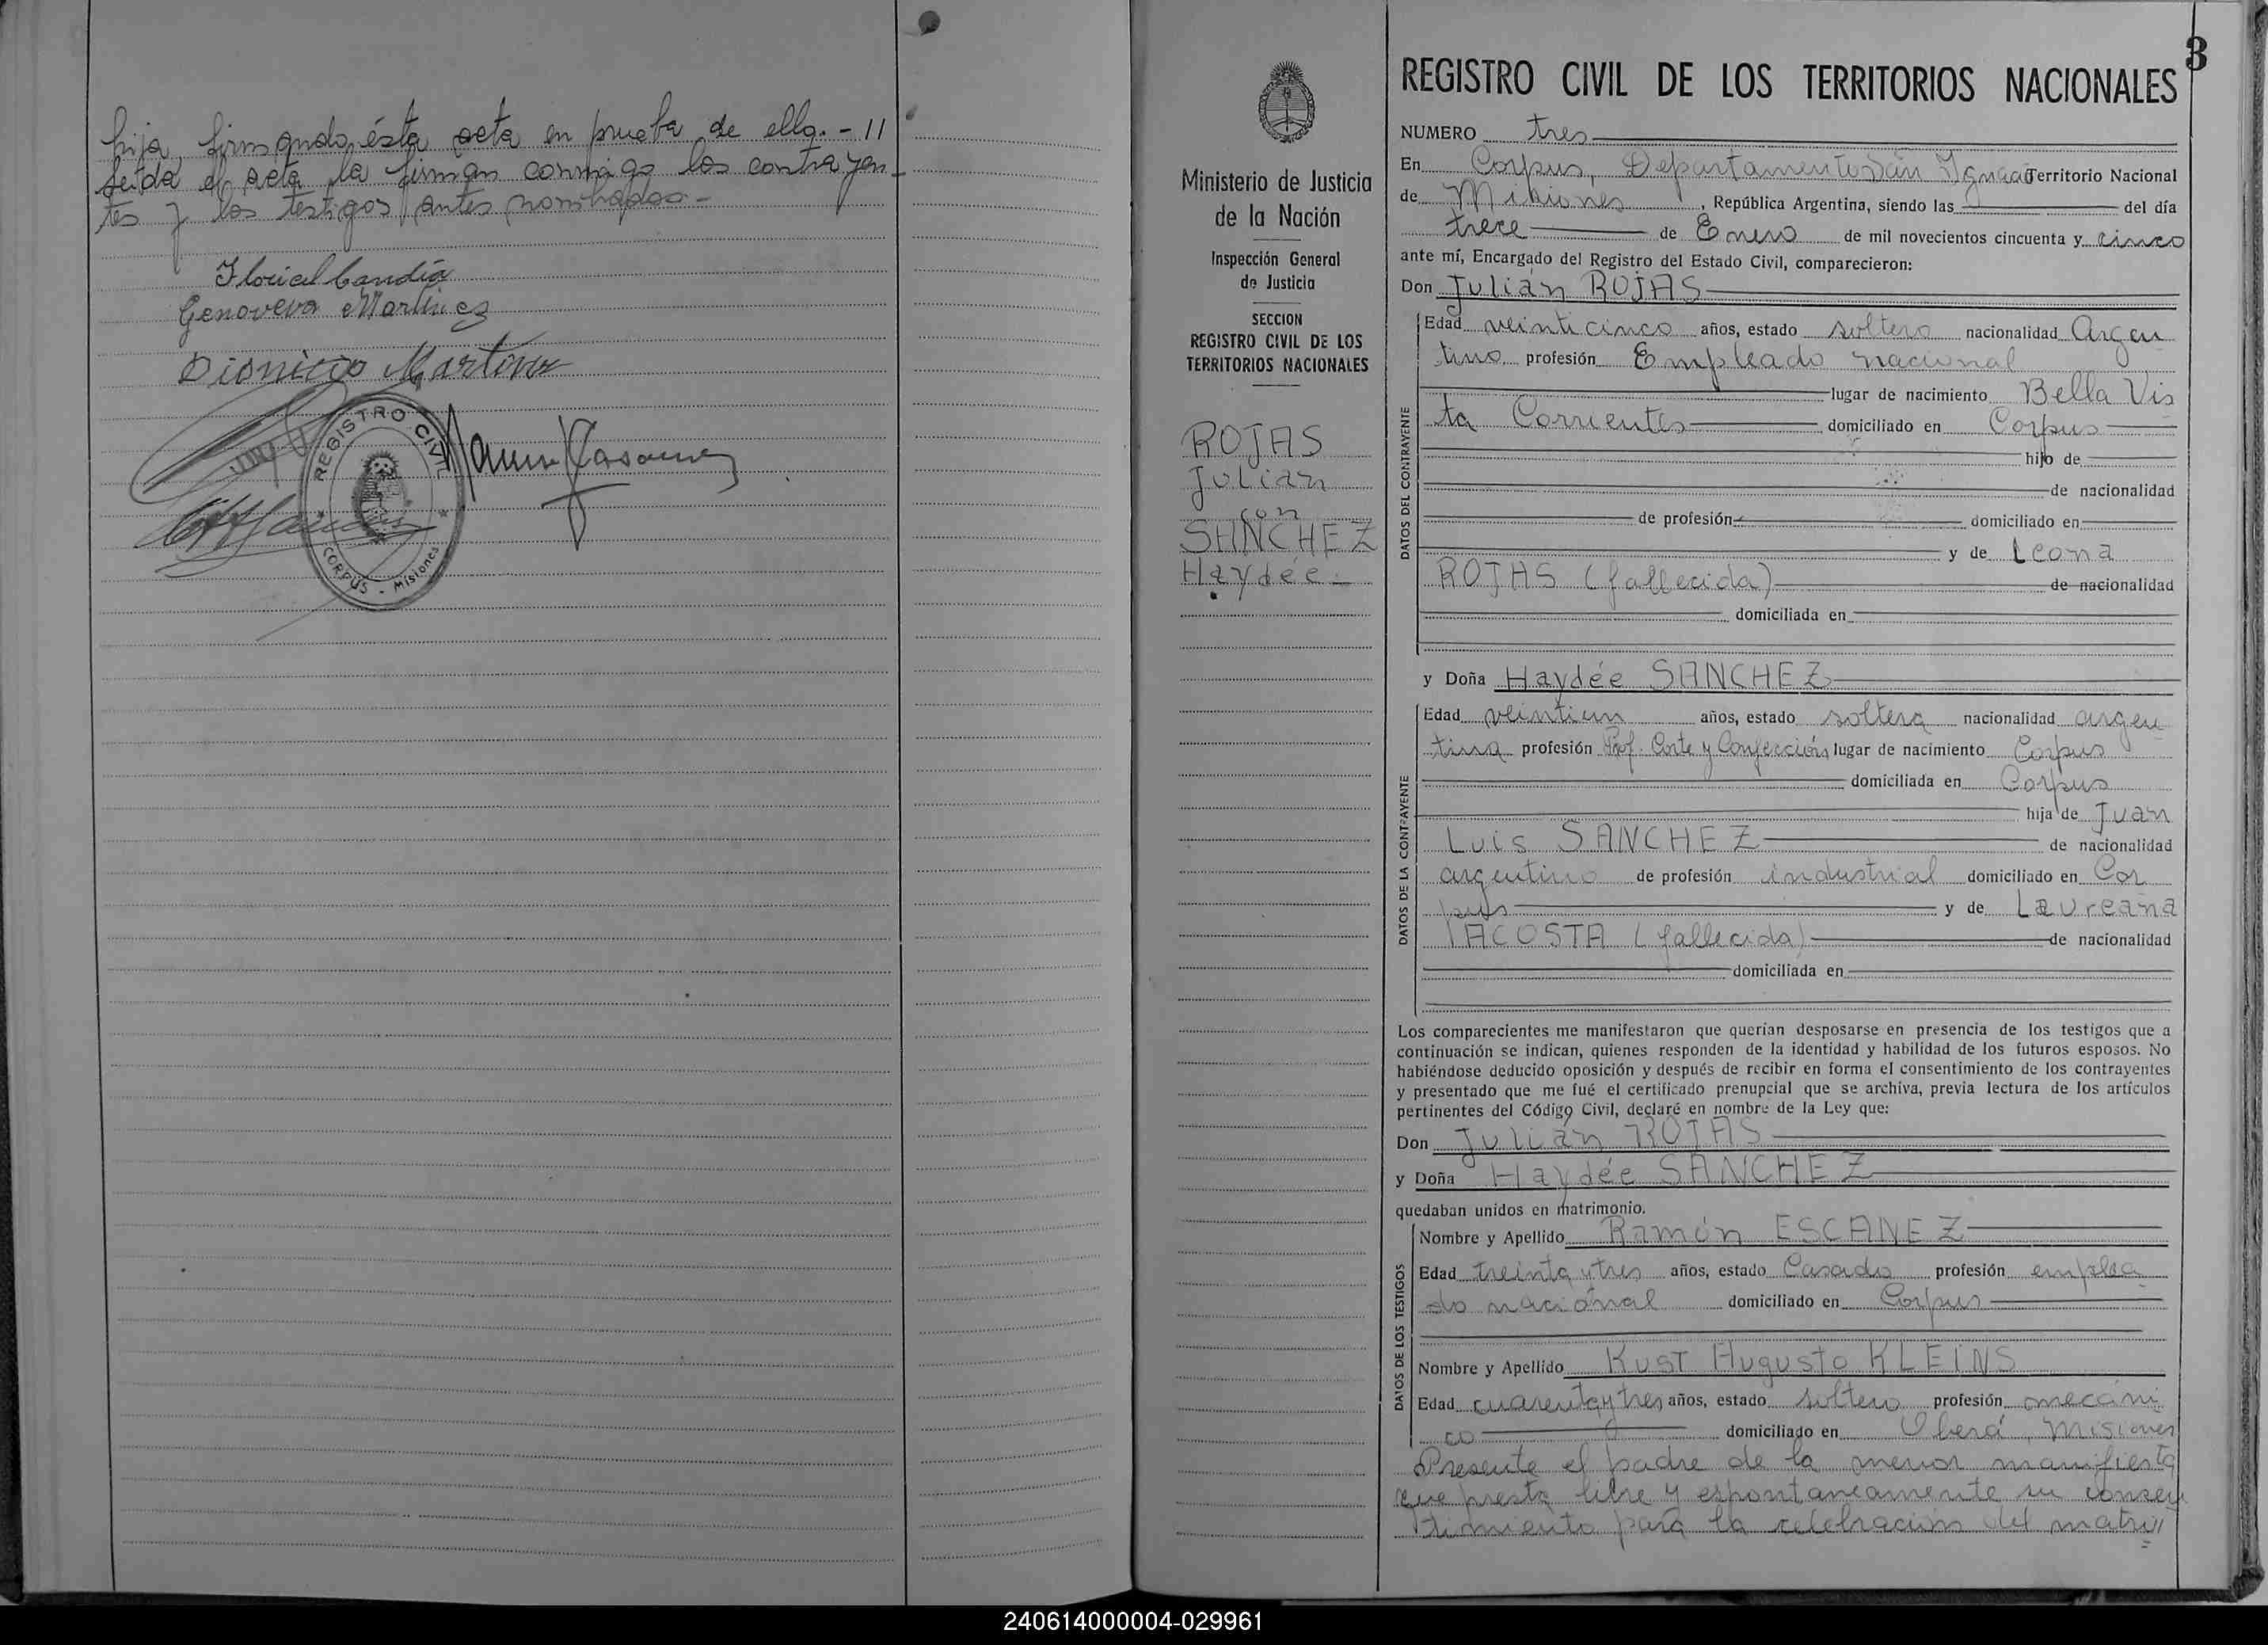 hija, firmando ésta acta en prueba de ello. - //
leída el acta la firman conmigo los contrayen_
tes y los testigos antes nombrados -
Genoveva Martínez
Dionicio Martinez
REGISTRO CIVIL
CORPUS - Misiones
3
Ministerio de Justicia
de la Nación
Inspección General
de Justicia
SECCION
REGISTRO CIVIL DE LOS
TERRITORIOS NACIONALES
ROJAS
Julián
con
SANCHEZ
Haydée -
REGISTRO CIVIL DE LOS TERRITORIOS NACIONALES
NUMERO tres
En Corpus, Departamento San Ignacio Territorio Nacional
de Misiones, República Argentina, siendo las del día
trece de Enero de mil novecientos cincuenta y cinco
ante mí, Encargado del Registro del Estado Civil, comparecieron:
Don Julián ROJAS
DATOS DEL CONTRAYENTE
Edad veinticinco años, estado soltero nacionalidad Argen
tino profesión Empleado nacional
lugar de nacimiento Bella Vis
ta Corrientes domiciliado en Corpus
hijo de
de nacionalidad
de profesión domiciliado en
y de Leona
ROJAS (fallecida) de nacionalidad
domiciliada en
y Doña Haydée SANCHEZ
DATOS DE LA CONTRAYENTE
Edad veintiun años, estado soltera nacionalidad argen
tina profesión Prof. Corte y Confección lugar de nacimiento Corpus
domiciliada en Corpus
hija de Juan
Luis SANCHEZ de nacionalidad
argentino de profesión industrial domiciliado en Cor
pus y de Laureana
ACOSTA (fallecida) de nacionalidad
domiciliada en
Los comparecientes me manifestaron que querían desposarse en presencia de los testigos que a
continuación se indican, quienes responden de la identidad y habilidad de los futuros esposos. No
habiéndose deducido oposición y después de recibir en forma el consentimiento de los contrayentes
y presentado que me fué el certificado prenupcial que se archiva, previa lectura de los artículos
pertinentes del Código Civil, declaré en nombre de la Ley que:
Don Julián ROJAS
y Doña Haydée SANCHEZ
quedaban unidos en matrimonio.
DATOS DE LOS TESTIGOS
Nombre y Apellido Ramón ESCANEZ
Edad treinta y tres años, estado Casado profesión emplea
do nacional domiciliado en Corpus
Nombre y Apellido Kust Augusto KLEINS
Edad cuarenta y tres años, estado soltero profesión mecáni
co domiciliado en Oberá, Misiones
Presente el padre de la menor manifiesta
que presta libre y espontaneamente su consen
timiento para la celebración del matri//
240614000004-029961